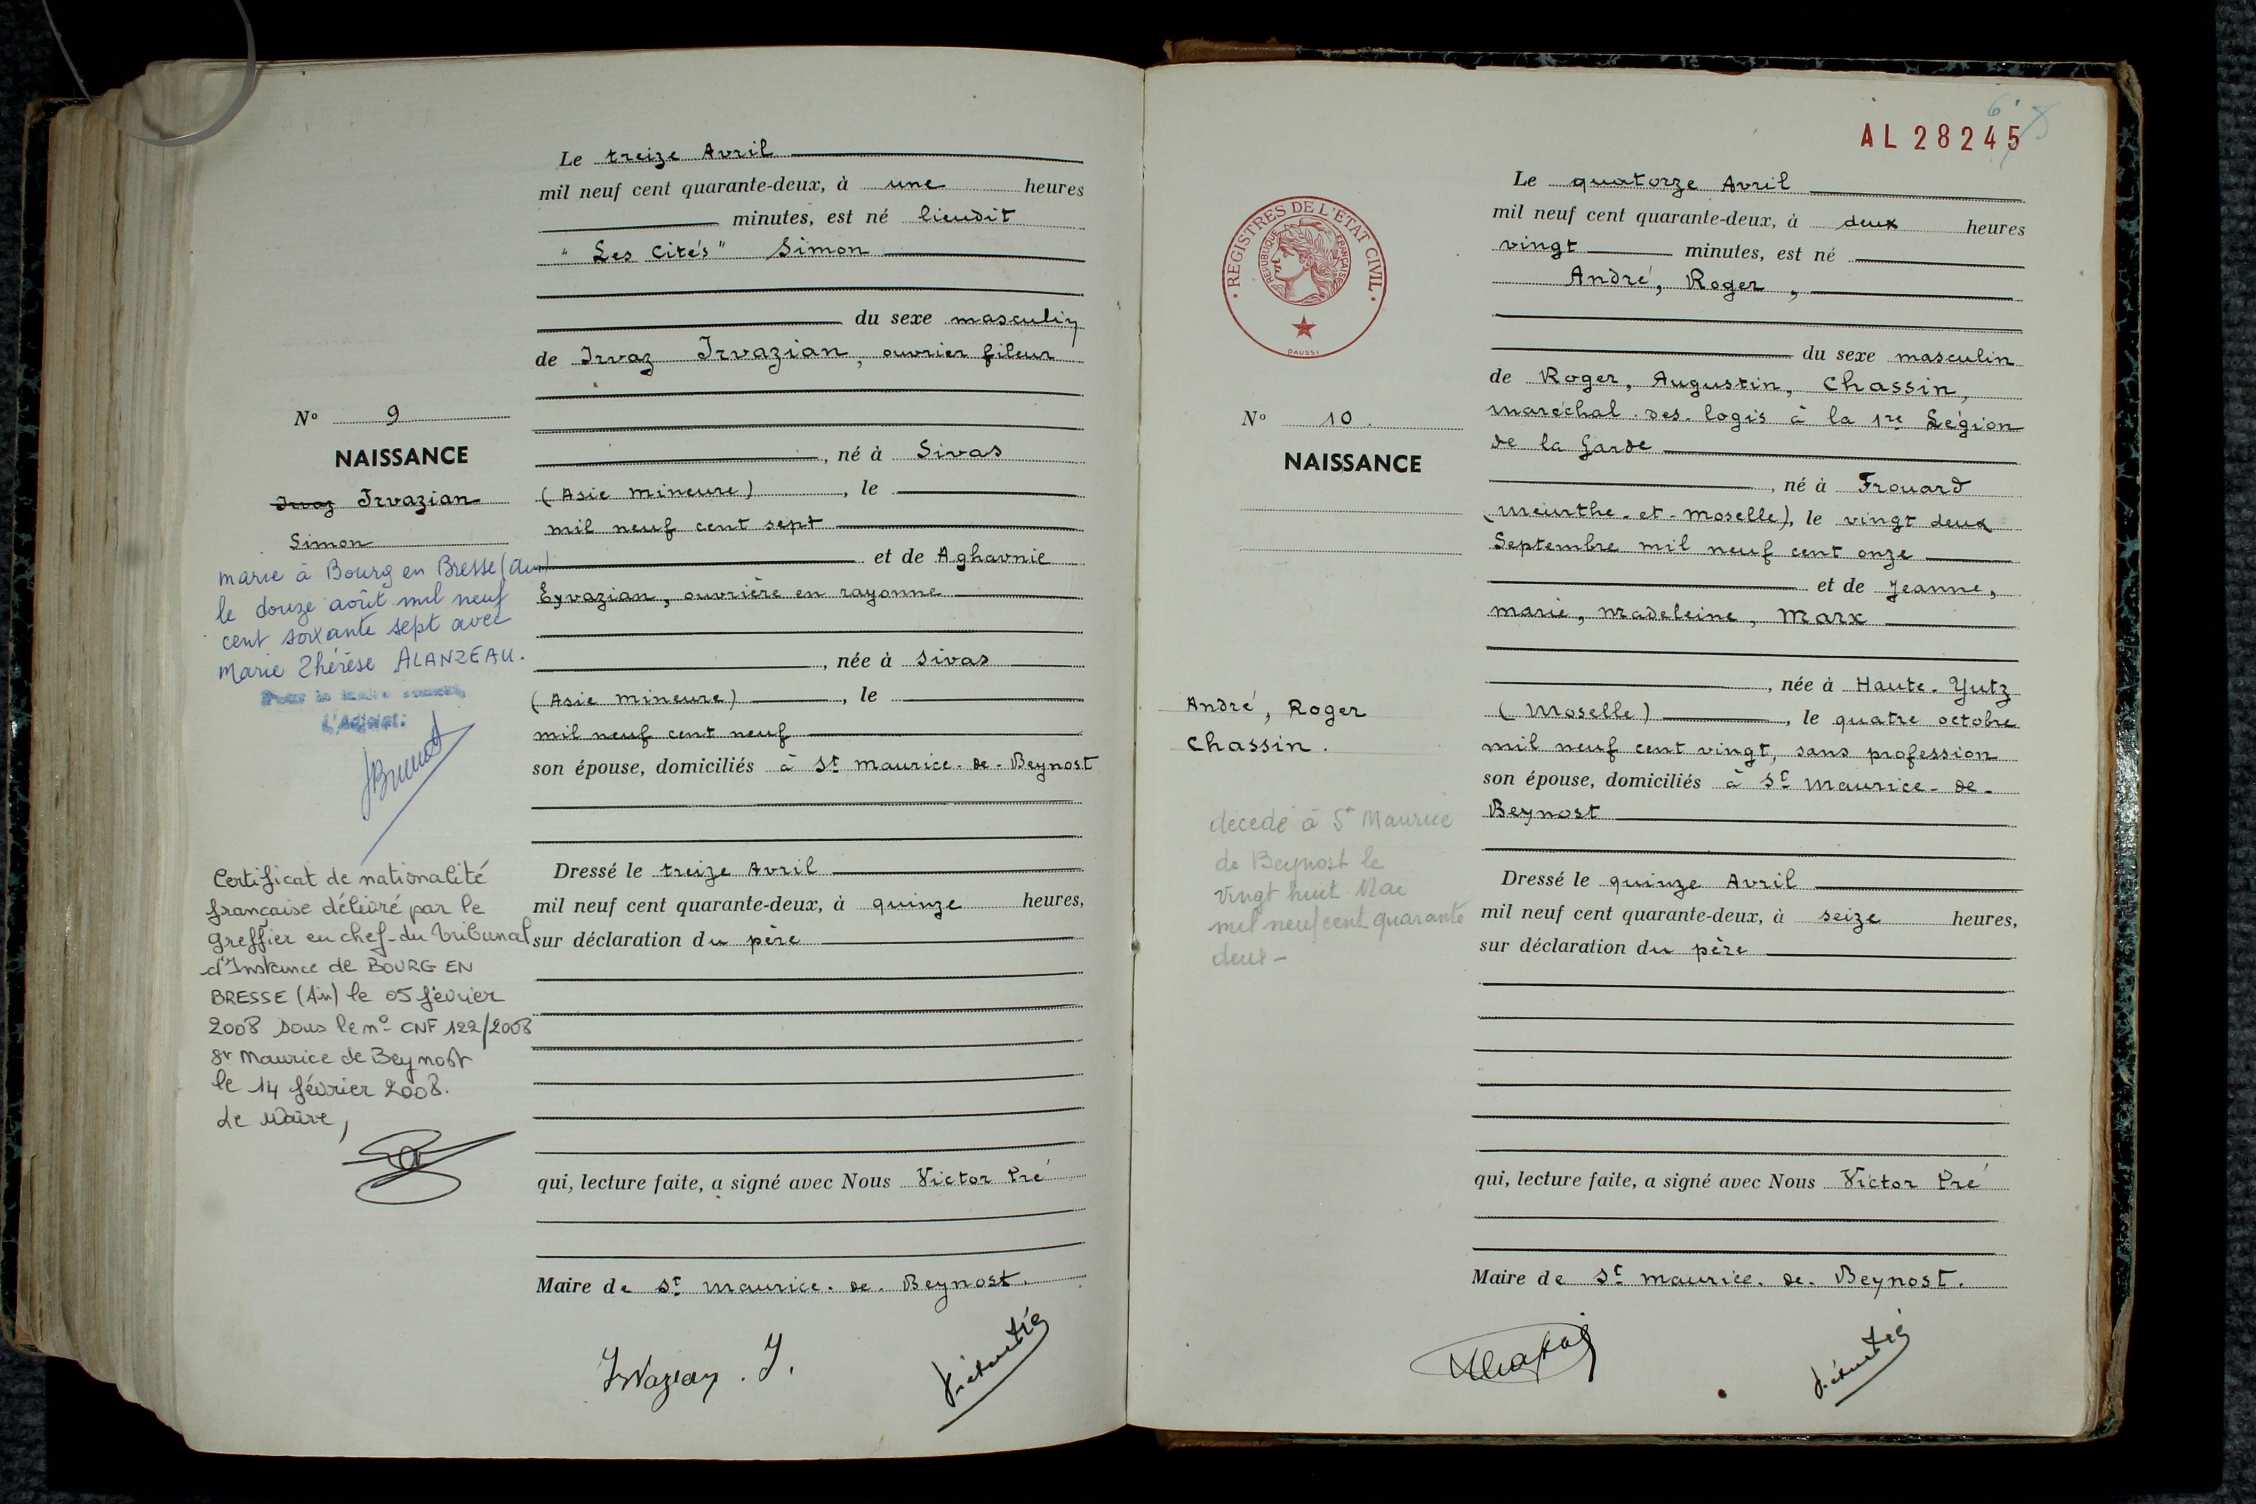 Le treize Avril
mil neuf cent quarante-deux, à une heures
minutes, est né lieudit
" Les Cités" Simon
du sexe masculin
de Irvaz Irvazian, ouvrier fileur
, né à Sivas
(Asie mineure), le
mil neuf cent sept
et de Aghavnie
Eyvazian, ouvrière en rayonne
, née à Sivas
(Asie mineure), le
mil neuf cent neuf
son épouse, domiciliés à St maurice-de-Beynost
Dressé le treize Avril
mil neuf cent quarante-deux, à quinze heures,
sur déclaration du père
qui, lecture faite, a signé avec Nous Victor Pré
Maire de St maurice-de-Beynost.
Irvazian. J.
No 9
NAISSANCE
Irvaz Irvazian
Simon
marié à Bourg en Bresse (Ain)
le douze août mil neuf
cent soixante sept avec
Marie Thérèse ALANZEAU.
L'Adjoint:
Certificat de nationalité
française délivré par le
greffier en chef du tribunal
d'Instance de BOURG EN
BRESSE (Ain) le 05 février
2008 sous le no CNF 122/2008
St Maurice de Beynost
le 14 février 2008.
Le Maire,
AL 28245
REGISTRES DE L'ETAT CIVIL
REPUBLIQUE FRANÇAISE
DAUSSY
Le quatorze Avril
mil neuf cent quarante-deux, à deux heures
vingt minutes, est né
André, Roger,
du sexe masculin
de Roger, Augustin, Chassin,
maréchal-des-logis à la 1re Légion
de la Garde
, né à Frouard
(meurthe-et-moselle), le vingt deux
Septembre mil neuf cent onze
et de Jeanne,
marie, madeleine, Marx
, née à Haute-Yutz
(Moselle), le quatre octobre
mil neuf cent vingt, sans profession
son épouse, domiciliés à St maurice-de-
Beynost
Dressé le quinze Avril
mil neuf cent quarante-deux, à seize heures,
sur déclaration du père
qui, lecture faite, a signé avec Nous Victor Pré
Maire de St maurice-de-Beynost.
No 10.
NAISSANCE
André, Roger
Chassin.
decedé à St Maurice
de Beynost le
vingt huit Mai
mil neuf cent quarante
deux -